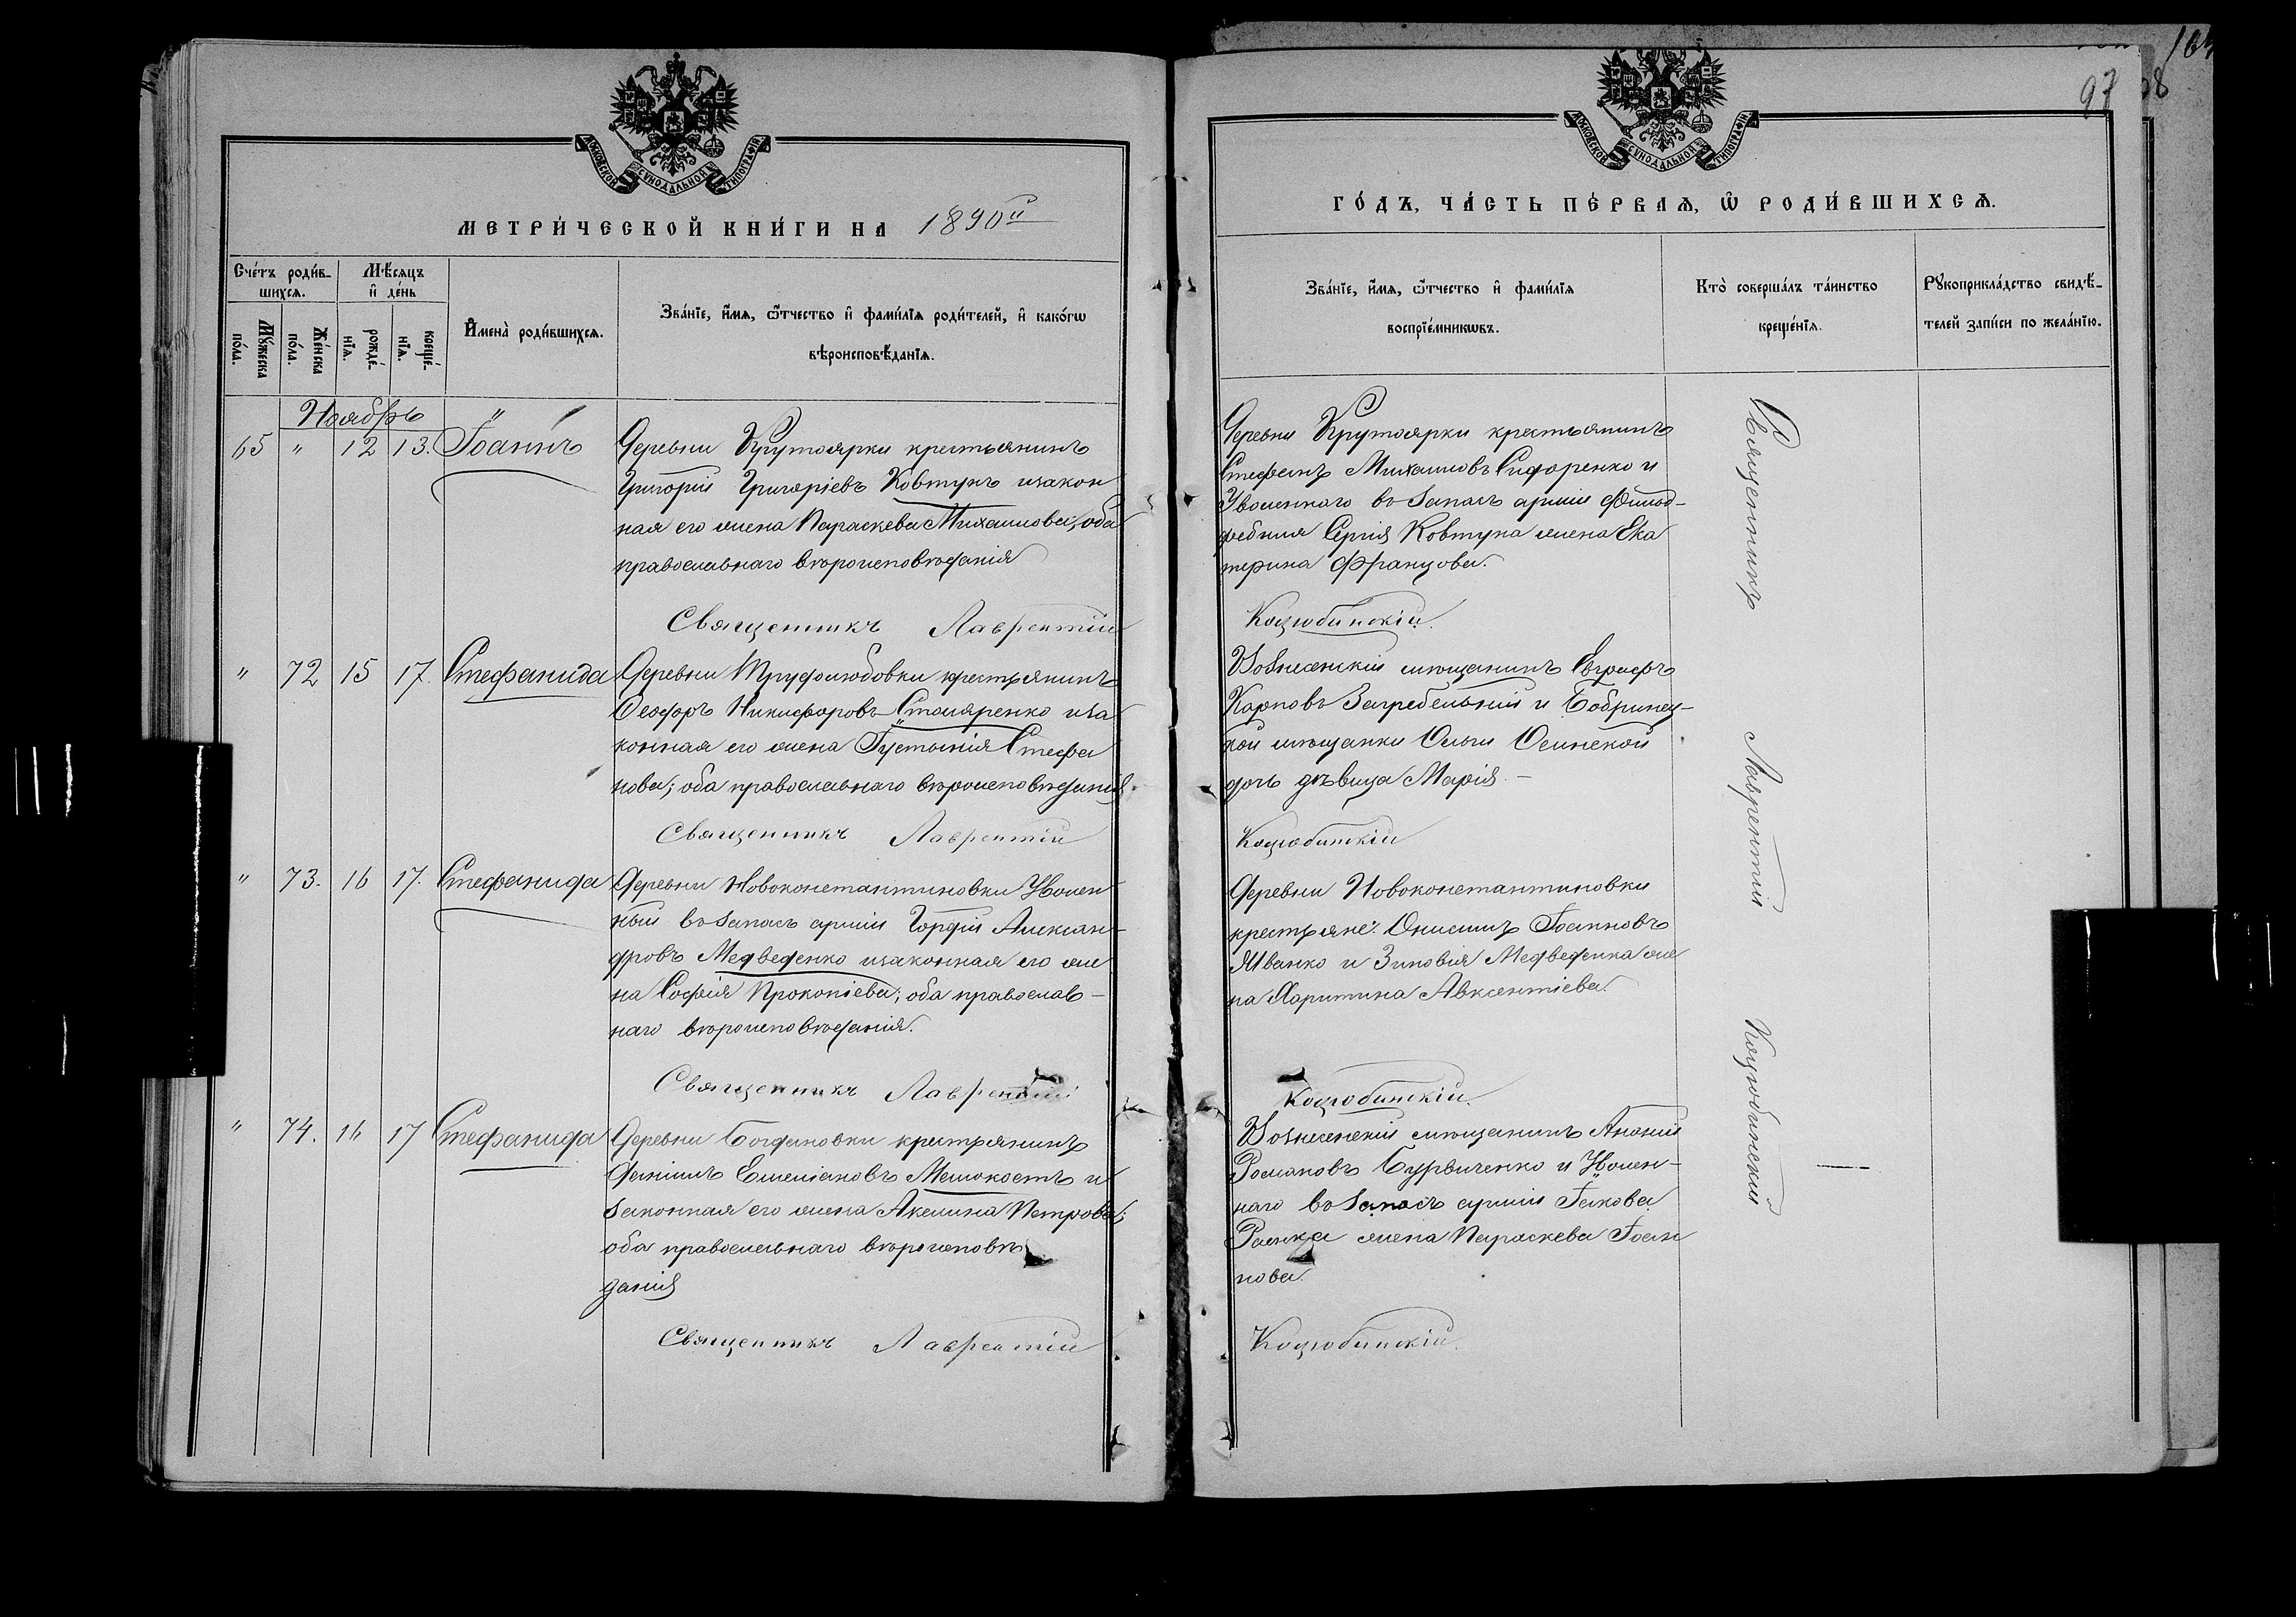 МОСКОВСКОЙ СѴНОДАЛЬНОЙ ТИПОГРАФІИ.
МЕТРИ́ЧЕСКОЙ КНИ́ГИ НА 1890й
Сче́тъ роди́в-
шихся.
Мѣ́сяцъ
и҆ де́нь
Мꙋ́жеска
по́ла.
Же́нска
по́ла.
рожде́-
нїѧ.
креще́-
нїѧ.
И҆мена̀ роди́вшихсѧ.
Зва́нїе, и҆́мѧ, ѻ҆́тчество и҆ фами́лїѧ роди́телей, и҆ како́гѡ
вѣроисповѣ́данїѧ.
Ноябрь
65 " 12 13. Іоаннъ
Деревни Крутоярки крестьянинъ
Григорій Григоріевъ Ковтунъ изакон
ная его жена Параскева Михаилова; оба
православнаго вѣроисповѣданія
Священникъ Лаврентій
" 72 15 17. Стефанида
Деревни Труфолюбовки крестьянинъ
Ѳеодоръ Никифоровъ Столяренко иза
конная его жена Густинія Стефа
нова; оба православнаго вѣроисповѣданія.
Священникъ Лаврентій
" 73. 16 17. Стефанида
Деревни Новоконстантиновки Уволен
ный въ запасъ арміи Гордій Алексан-
дровъ Медведенко изаконная его же
на Софія Прокопіева; оба православ-
наго вѣроисповѣданія.
Священникъ Лаврентій
" 74. 16 17 Стефанида
Деревни Богдановки крестьянинъ
Даніилъ Емеліановъ Мелокостъ и
законная его жена Акелина Петрова;
оба православнаго вѣроисповѣ
данія
Священникъ Лаврентій
97
МОСКОВСКОЙ СѴНОДАЛЬНОЙ ТИПОГРАФІИ.
ГО́ДЪ, ЧА́СТЬ ПЕ́РВАѦ, Ѡ҆ РОДИ́ВШИХСѦ.
Зва́нїе, и҆́мѧ, ѻ҆́тчество и҆ фами́лїѧ
воспрїе́мникѡвъ.
Кто̀ соверша́лъ та́инство
креще́нїѧ.
Рꙋкоприкла́дство свидѣ́-
телей за́писи по жела́нїю.
Деревни Крутоярки крестьянинъ
Стефанъ Михаиловъ Сидоренко и
Уволеннаго въ запасъ арміи
Сергія Ковтуна жена Ека
терина Францова.
Коцюбинскій.
Вознесенскій мѣщанинъ Евграфъ
Карповъ Загребельный и Бобринец-
кой мѣщанки Ольги
дочь дѣвица Марія.
Коцюбинскій
Деревни Новоконстантиновки
крестьяне: Онисимъ Іоанновъ
Иванко и Зиновія Медведенка же
на Харитина Авксентіева.
Коцюбинскій.
Вознесенскій мѣщанинъ Ананій
Романовъ Бурвиченко и Уволен-
наго въ запасъ арміи Іакова
жена Параскева Іоан
нова.
Коцюбинскій.
Священникъ Лаврентій Коцюбинскій